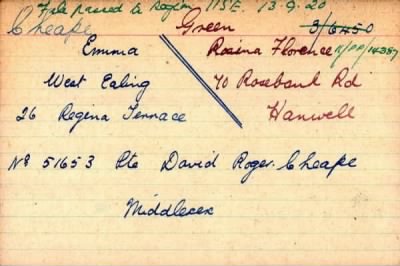 File passed to Region 115E. 13.9.20
Cheape Green 3/6450
Emma Rosina Florence 11/PP/14387
West Ealing 70 Rosebank Rd
26 Regina Terrace Hanwell
No 51653 Pte David Roger. Cheape
Middlesex